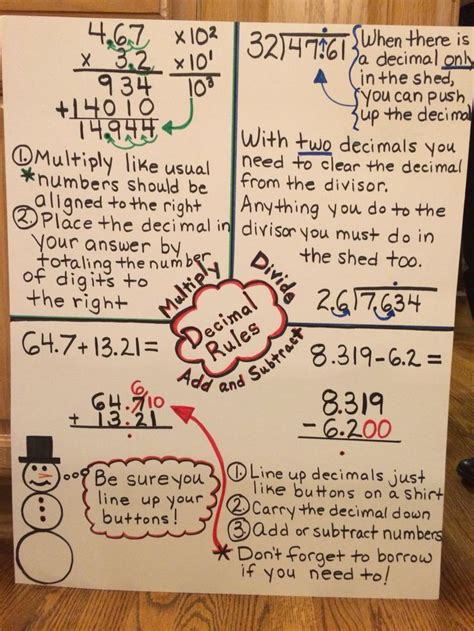 4.67 x10²
x 3.2 x10¹
934 10³
+14010
14944
① Multiply like usual
* numbers should be
aligned to the right
② Place the decimal in
your answer by
totaling the number
of digits to
the right
32)47.61
When there is
a decimal only
in the shed,
you can push
up the decimal
With two decimals you
need to clear the decimal
from the divisor.
Anything you do to the
divisor you must do in
the shed too.
2.6)7.634
Multiply
Divide
Add and Subtract
Decimal
Rules
64.7+13.21=
6 10
64.7
+ 13.21
.
Be sure you
line up your
buttons!
8.319-6.2=
8.319
- 6.200
.
① Line up decimals just
like buttons on a shirt
② Carry the decimal down
③ Add or subtract numbers
* Don't forget to borrow
if you need to!